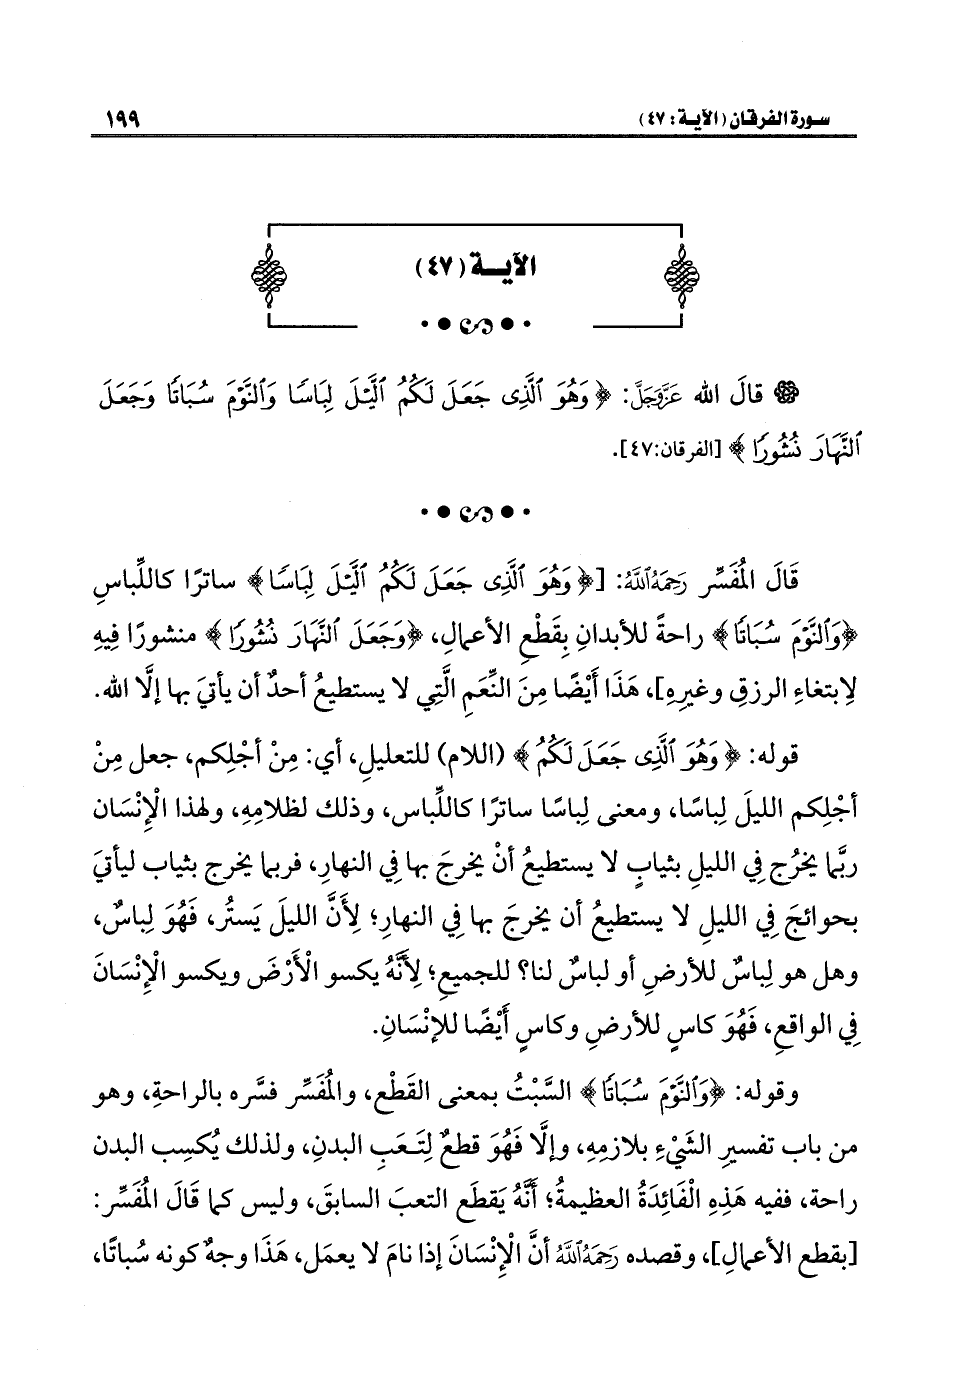 سورة الفرقان (الآية: ٤٧) ١٩٩
الآيـــة (٤٧)
قالَ الله عَزَّوَجَلَّ: ﴿وَهُوَ ٱلَّذِى جَعَلَ لَكُمُ ٱلَّيْلَ لِبَاسًا وَٱلنَّوْمَ سُبَاتًا وَجَعَلَ
ٱلنَّهَارَ نُشُورًا﴾ [الفرقان:٤٧].
قَالَ المُفَسِّر رَحِمَهُ اللَّهُ: [﴿وَهُوَ ٱلَّذِى جَعَلَ لَكُمُ ٱلَّيْلَ لِبَاسًا﴾ ساترًا كاللِّباسِ
﴿وَٱلنَّوْمَ سُبَاتًا﴾ راحةً للأبدانِ بِقَطْعِ الأعمالِ، ﴿وَجَعَلَ ٱلنَّهَارَ نُشُورًا﴾ منشورًا فِيهِ
لِابتغاءِ الرزقِ وغيرِهِ]، هَذَا أَيْضًا مِنَ النِّعَمِ الَّتِي لا يستطيعُ أحدٌ أن يأتيَ بها إلَّا الله.
قوله: ﴿وَهُوَ ٱلَّذِى جَعَلَ لَكُمُ﴾ (اللام) للتعليلِ، أي: مِنْ أجْلِكم، جعل مِنْ
أجْلِكم الليلَ لِباسًا، ومعنى لِباسًا ساترًا كاللِّباس، وذلك لظلامِهِ، ولهذا الْإِنْسَان
ربَّما يَخْرُج فِي الليلِ بثيابٍ لا يستطيعُ أنْ يخرجَ بها فِي النهارِ، فربما يخرج بثياب ليأتيَ
بحوائجَ فِي الليلِ لا يستطيعُ أن يخرجَ بها فِي النهارِ؛ لِأَنَّ الليلَ يَستُر، فَهُوَ لِباسٌ،
وهل هو لِباسٌ للأرضِ أو لباسٌ لنا؟ للجميعِ؛ لِأَنَّهُ يكسو الْأَرْضَ ويكسو الْإِنْسَانَ
فِي الواقعِ، فَهُوَ كاسٍ للأرضِ وكاسٍ أَيْضًا للإنْسَانِ.
وقوله: ﴿وَٱلنَّوْمَ سُبَاتًا﴾ السَّبْتُ بمعنى القَطْع، والمُفَسِّر فسَّره بالراحةِ، وهو
من باب تفسيرِ الشَّيْءِ بلازمِهِ، وإلَّا فَهُوَ قطعٌ لِتَعَبِ البدنِ، ولذلك يُكسِب البدن
راحة، ففيه هَذِهِ الْفَائِدَةُ العظيمةُ؛ أَنَّهُ يَقطَع التعبَ السابقَ، وليس كما قَالَ المُفَسِّر:
[بقطع الأعمالِ]، وقصده رَحِمَهُ اللَّهُ أنَّ الْإِنْسَانَ إذا نامَ لا يعمَل، هَذَا وجهُ كونه سُباتًا،